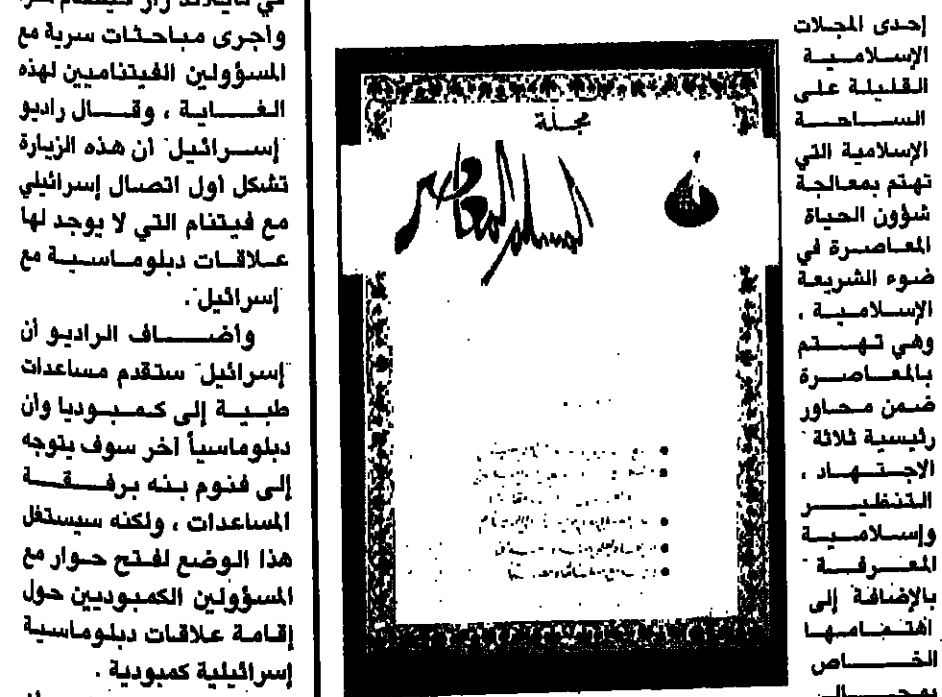 إحدى المجلات
الإسلامية
القليلة على
الساحة
الإسلامية التي
تهتم بمعالجة
شؤون الحياة
المعاصرة في
ضوء الشريعة
الإسلامية ،
وهي تهتم
بالمعاصرة
ضمن محاور
رئيسية ثلاثة
الاجتهاد ،
التنظير
وإسلامية
المعرفة
بالإضافة إلى
اهتمامها
الخاص
مجلة
المسلم المعاصر
واجرى مباحثات سرية مع
المسؤولين الفيتناميين لهذه
الغاية ، وقال راديو
إسرائيل" ان هذه الزيارة
تشكل اول اتصال إسرائيلي
مع فيتنام التي لا يوجد لها
علاقات دبلوماسية مع
"إسرائيل".
وأضاف الراديو أن
"إسرائيل" ستقدم مساعدات
طبية إلى كمبوديا وان
دبلوماسياً آخر سوف يتوجه
إلى فنوم بنه برفقة
المساعدات ، ولكنه سيستغل
هذا الوضع لفتح حوار مع
المسؤولين الكمبوديين حول
إقامة علاقات دبلوماسية
إسرائيلية كمبودية .